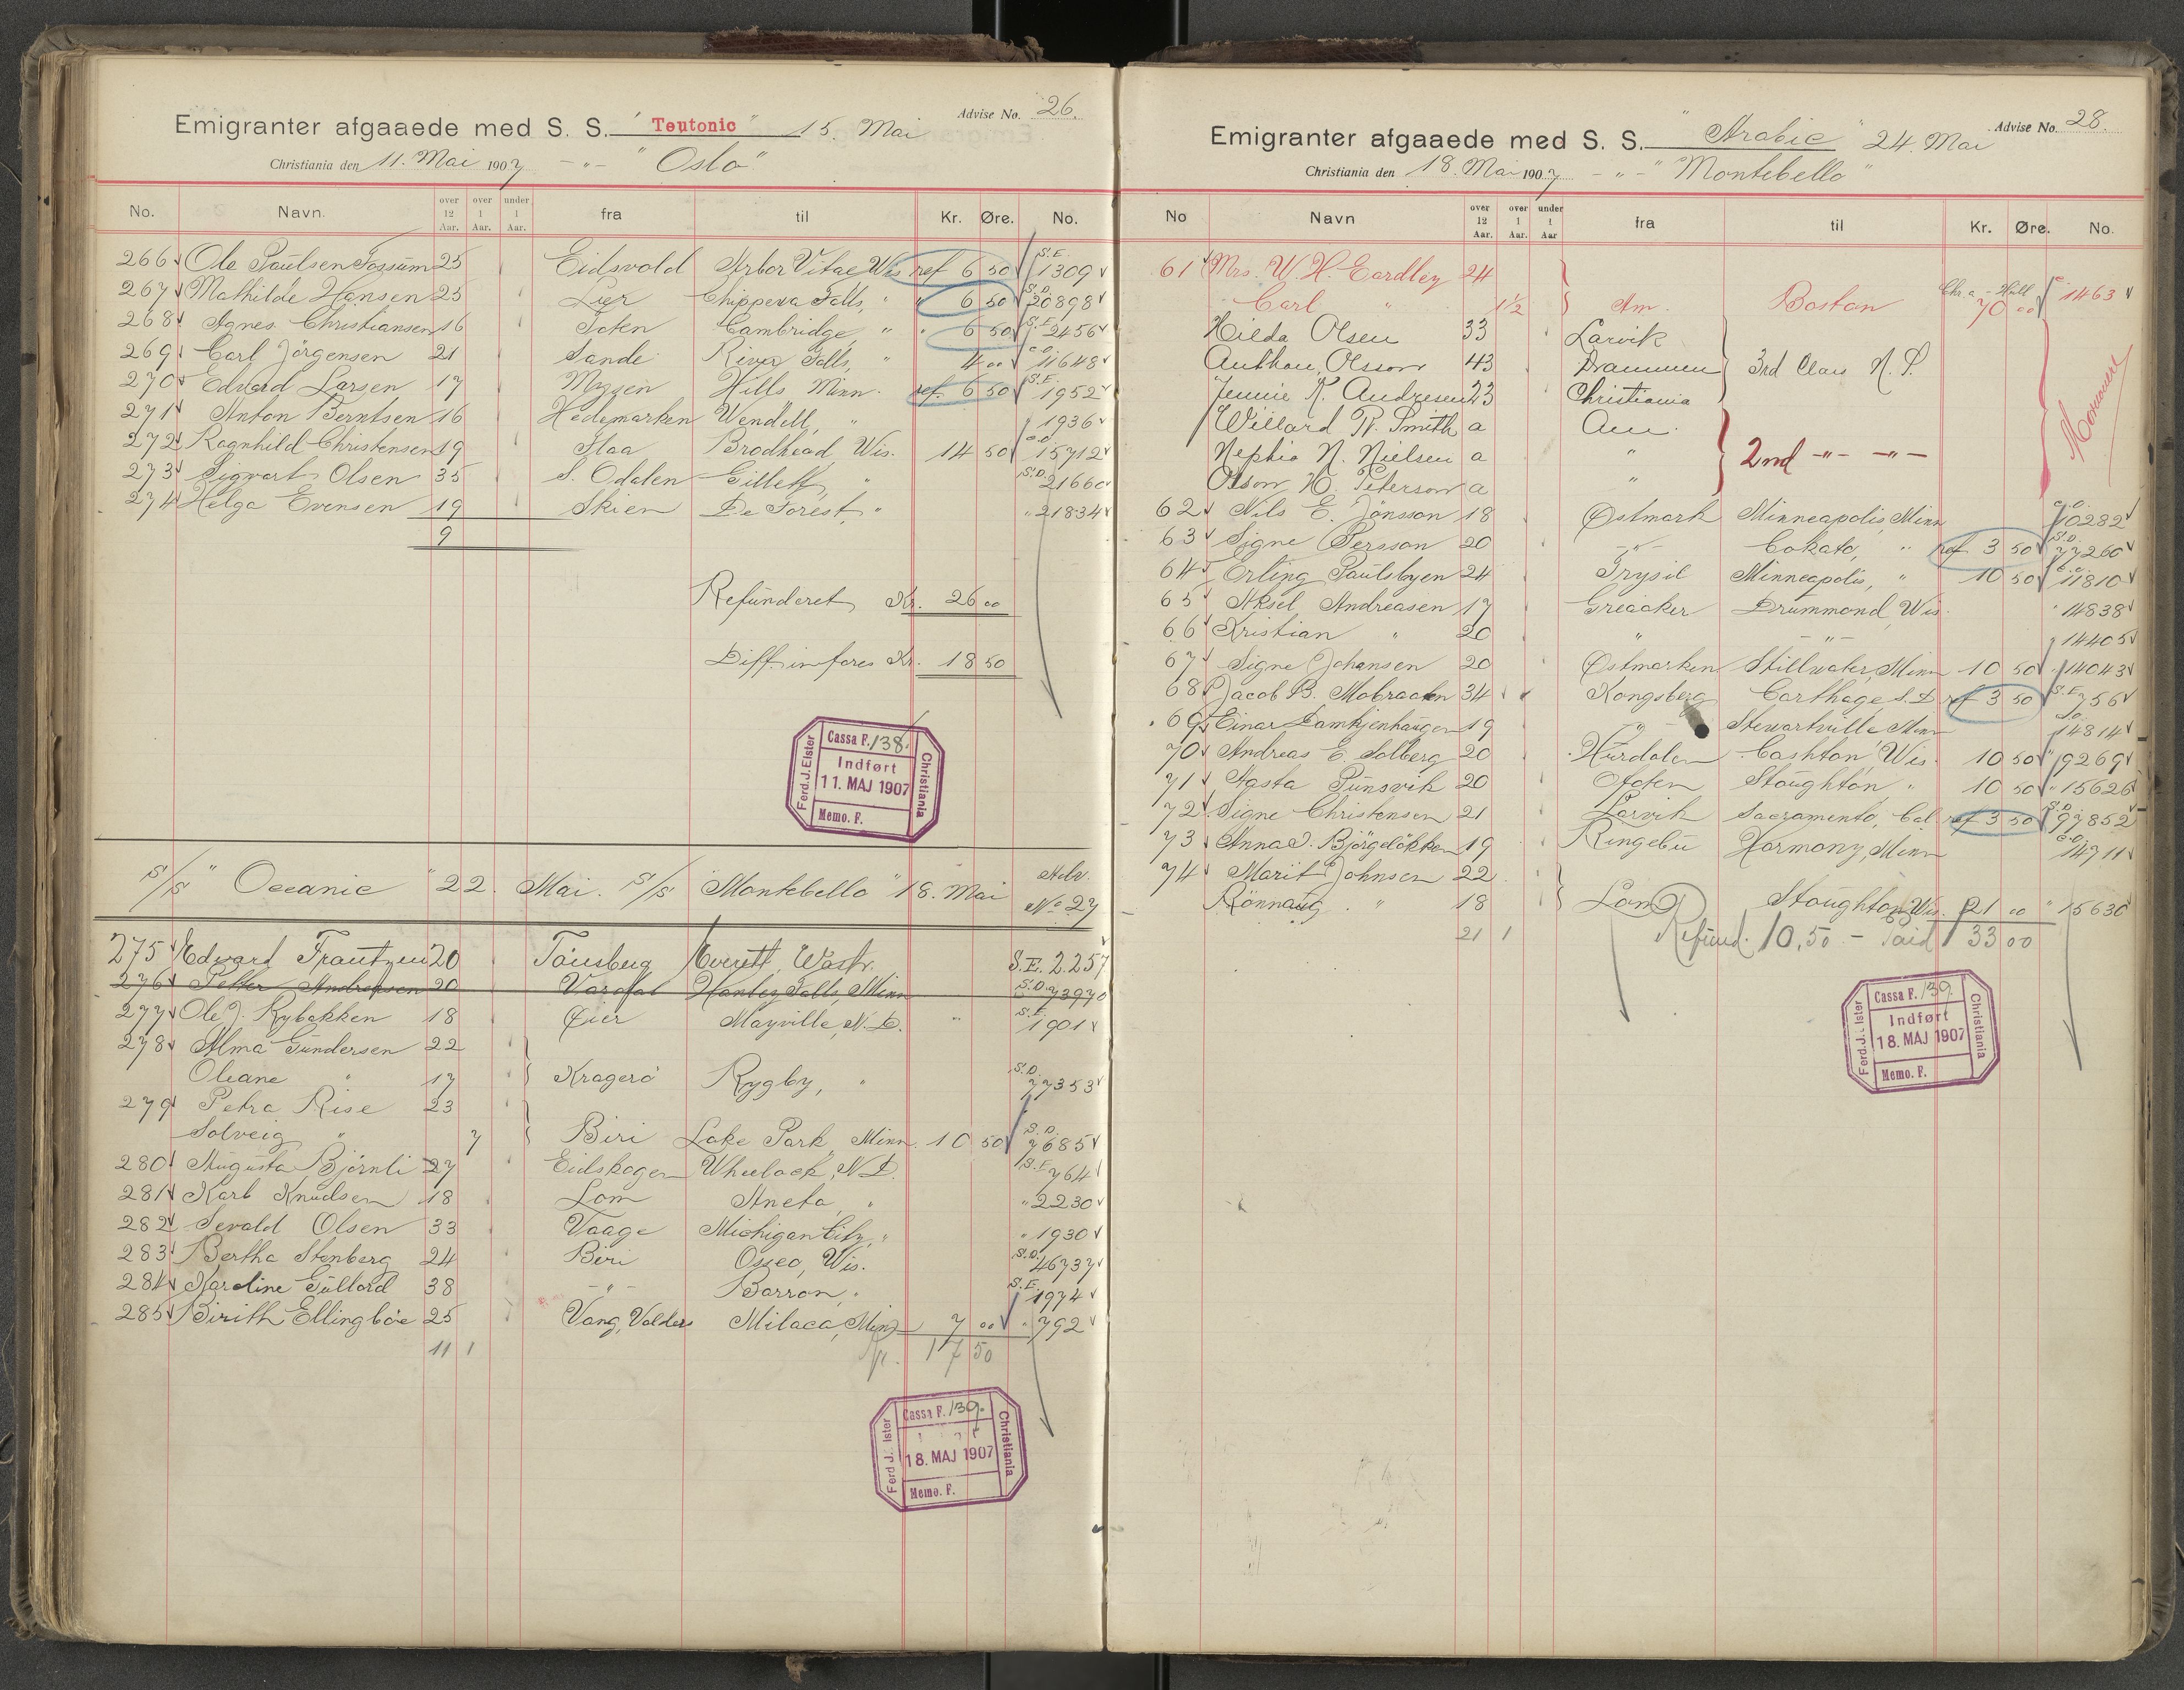 Emigranter afgaaede med S. S. "Teutonic" 15. Mai Advise No. 26.
Christiania den 11. Mai 1907 -"- "Oslo"
No. Navn. over 12 Aar. over 1 Aar. under 1 Aar. fra til Kr. Øre. No.
266 Ole Paulsen Fossum 25 Eidsvold Arbor Vitae Wis ref 6 50 S.E. 1309
267 Mathilde Hansen 25 Lier Chippewa Falls, " " 6 50 S.D. 20898
268 Agnes Christiansen 16 Toten Cambridge, " " 6 50 S.E. 2456
269 Carl Jörgensen 21 Sande River Falls, " 4 00 c.o. 11648
270 Edvard Larsen 17 Mysen Hills Minn. ref. 6 50 S.E. 1952
271 Anton Berntsen 16 Hedemarken Wendell, " 1936
272 Ragnhild Christensen 19 Flaa Brodhead Wis. 14 50 c.o. 15712
273 Sigvart Olsen 35 S. Odalen Gillett, " S.D. 21660
274 Helga Evensen 19 Skien De Forest, " " 21834
9
Refunderet Kr. 26 00
Diff. in fares Kr. 18 50
Ferd. J. Elster Cassa F. 138. Christiania
Indført
11. MAJ 1907
Memo. F.
S/S "Oceanic" 22. Mai. S/S "Montebello" 18. Mai Adv. No 27
275 Edvard Frantzen 20 Tönsberg Everett, Wash. S.E. 2257
276 Petter Andreasen 20 Vardal Hanley Falls, Minn S.D. 73970
277 Ole J. Rybakken 18 Öier Mayville, N.D. " S.E. 1901
278 Alma Gundersen 22
Oleane " 17 Kragerö Rygby, " S.D. 77353
279 Petra Rise 23
Solveig " 7 Biri Lake Park, Minn. 10 50 S.D. 7685
280 Augusta Björnli 27 Eidskogen Wheelock, N.D. S.E. 764
281 Karl Knudsen 18 Lom Aneta, " " 2230
282 Sevald Olsen 33 Vaage Michigan City, " " 1930
283 Bertha Stenberg 24 Biri Osseo, Wis. S.D. 46737
284 Karoline Gullord 38 -"- Barron, " S.E. 1974
285 Birith Ellingböe 25 Vang, Valders Milaca, Minn 7 00 " 792
11 1 Kr. 17 50
Ferd J. Elster Cassa F. 139. Christiania
18. MAJ 1907
Memo. F.
Emigranter afgaaede med S. S. "Arabic" 24. Mai Advise No. 28.
Christiania den 18. Mai 1907 -"- "Montebello"
No Navn over 12 Aar. over 1 Aar. under 1 Aar fra til Kr. Øre. No.
61 Mrs. W. H. Eardley 24
Carl " 1½ Am. Boston Chr.a - Hull 70 00 1463
Hilda Olsen 33 Larvik
Anthon Olsson 43 Drammen 3rd Class N. P.
Jennie K. Andresen 23 Christiania
Willard R. Smith a Am.
Nephia N. Nielsen a " 2nd -"- -"-
Olson H. Peterson a "
Mormoner
62 Nils E. Jönsson 18 Östmark Minneapolis, Minn c.o. 10282
63 Signe Persson 20 -"- Cokato, " ref 3 50 S.D. 77260
64 Erling Paulsbyen 24 Trysil Minneapolis, " 10 50 c.o. 11810
65 Aksel Andreasen 17 Greaaker Drummond, Wis. " 14838
66 Kristian " 20 " -"- 14405
67 Signe Johansen 20 Östmarken Stillwater, Minn 10 50 14043
68 Jacob B. Mobraaten 34 Kongsberg Carthage S.D. ref 3 50 S.E. 756
69 Einar Damhjenhaugen 19 -"- Stewartville Minn c.o. 14814
70 Andreas E. Solberg 20 Hurdalen Cashton Wis. 10 50 " 9269
71 Aasta Punsvik 20 Stoughton " 10 50 " 15626
72 Signe Christensen 21 Larvik Sacramento, Cal ref 3 50 S.D. 97852
73 Anna O. Björgelökken 19 Ringebu Harmony, Minn c.o. 14711
74 Marit Johnsen 22
Rönnaug " 18 Lom Stoughton Wis. 21 00 " 15630
21 1 Refund. 10,50 - Paid 133 00
Ferd. J. Elster Cassa F. 139. Christiania
Indført
18. MAJ 1907
Memo. F.